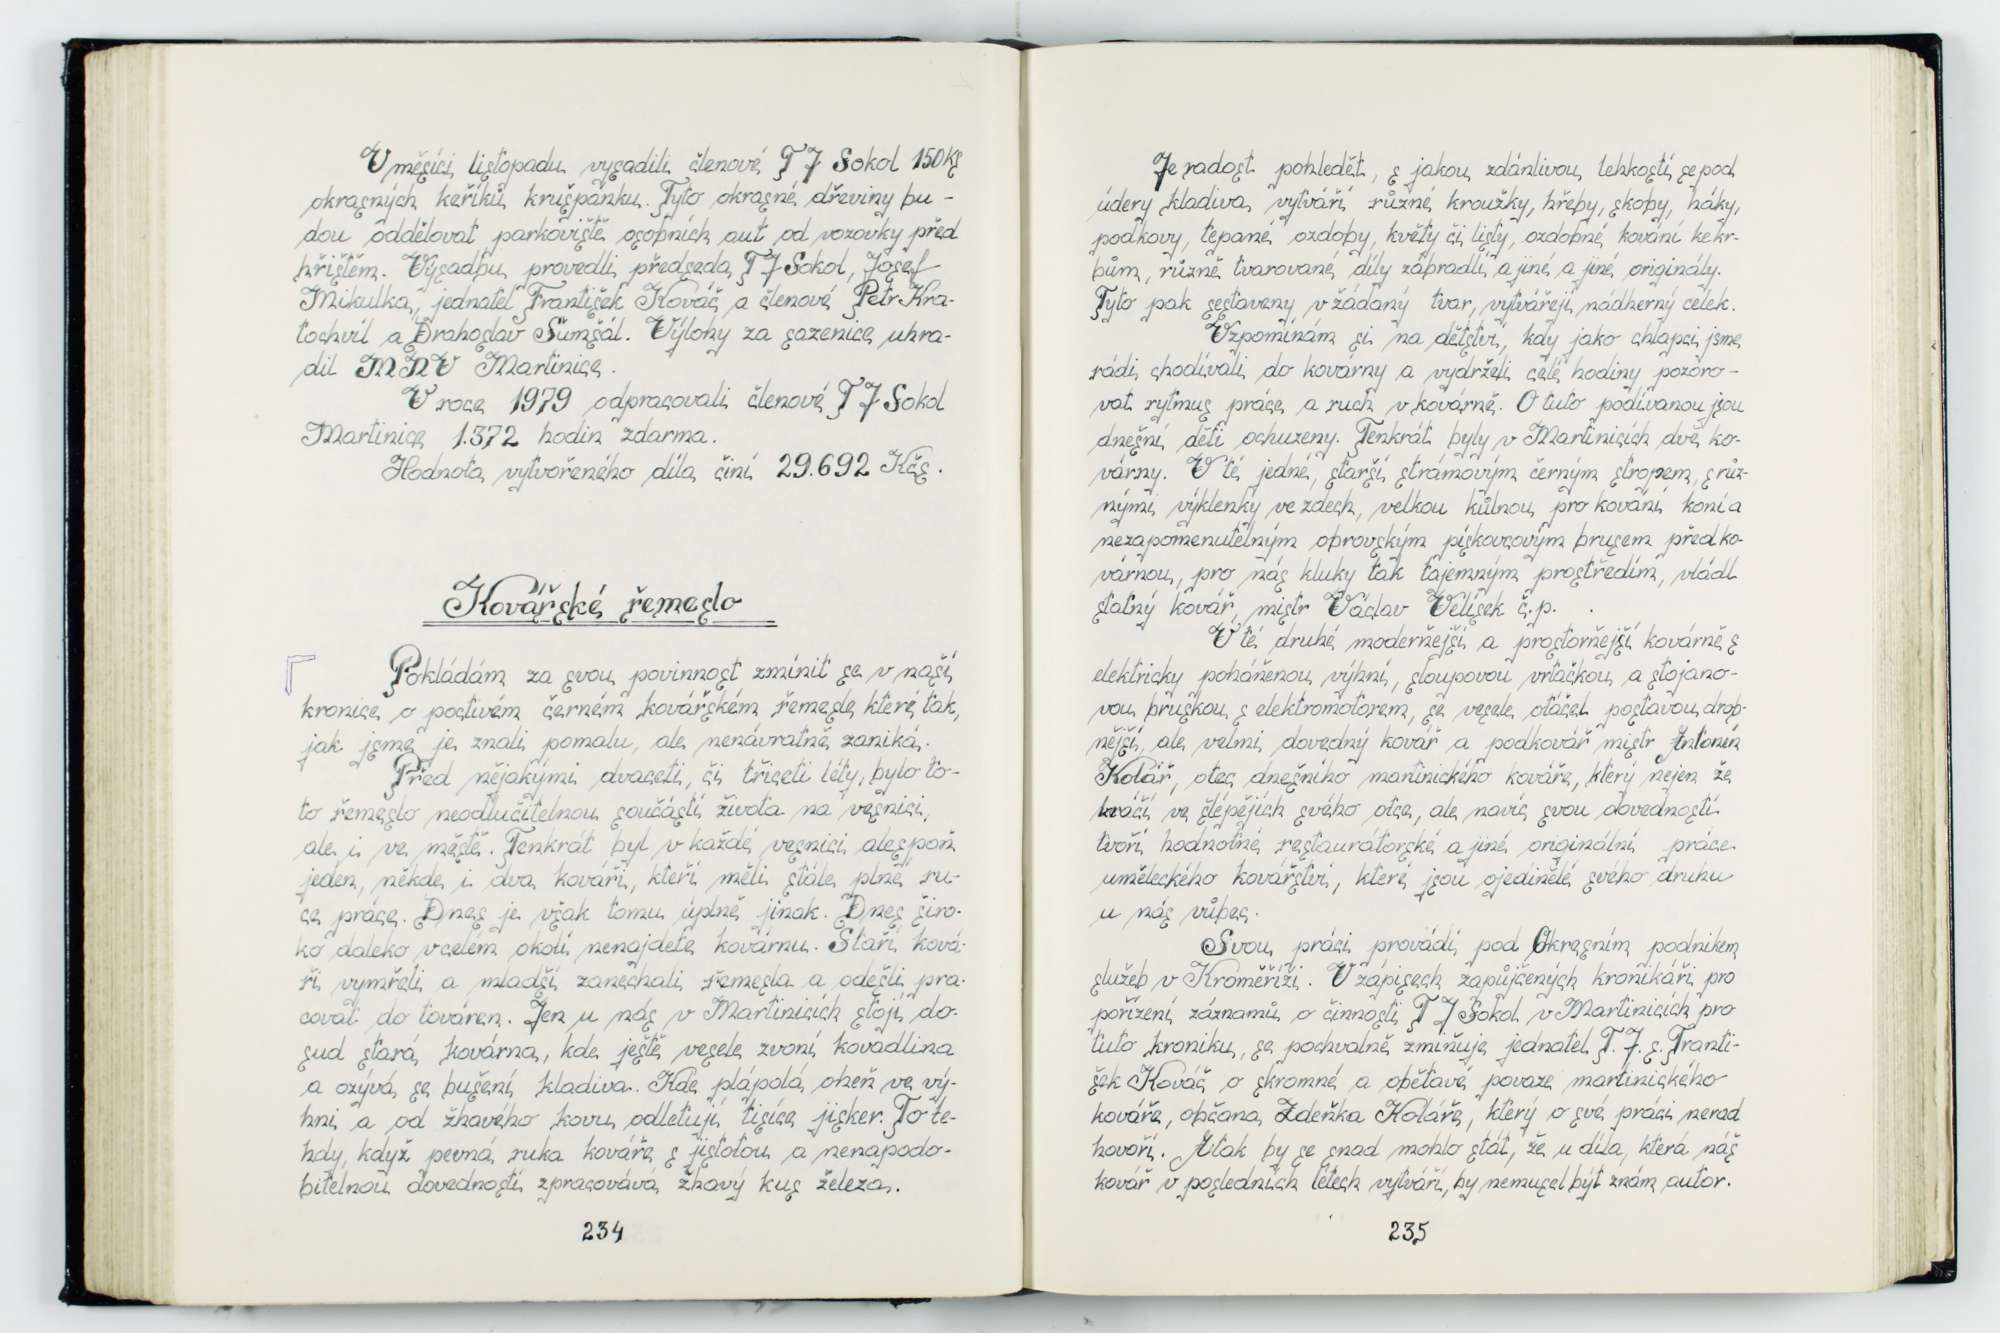 V měsíci listopadu vysadili členové TJ Sokol 150 ks
okrasných keříků krušpánku. Tyto okrasné dřeviny bu-
dou oddělovat parkoviště osobních aut od vozovky před
hřištěm. Výsadbu provedli předseda TJ Sokol, Josef
Mikulka, jednatel František Kováč a členové Petr Kra-
tochvíl a Drahoslav Šumšál. Výlohy za sazenice uhra-
dil MNV Martinice.
V roce 1979 odpracovali členové TJ Sokol
Martinice 1.372 hodin zdarma.
Hodnota vytvořeného díla činí 29.692 Kčs.
Kovářské řemeslo
Pokládám za svou povinnost zmínit se v naší
kronice o poctivém černém kovářském řemesle které tak,
jak jsme je znali pomalu, ale nenávratně zaniká.
Před nějakými dvaceti, či třiceti léty, bylo to-
to řemeslo neodlučitelnou součástí života na vesnici,
ale i ve městě. Tenkrát byl v každé vesnici alespoň
jeden, někde i dva kováři, kteří měli stále plné ru-
ce práce. Dnes je však tomu úplně jinak. Dnes širo-
ko daleko v celém okolí nenajdete kovárnu. Staří ková-
ři vymřeli a mladší zanechali řemesla a odešli pra-
covat do továren. Jen u nás v Martinicích stojí do-
sud stará kovárna, kde ještě vesele zvoní kovadlina
a ozývá se bušení kladiva. Kde plápolá oheň ve vý-
hni a od žhavého kovu odletují tisíce jisker. To te-
hdy, když pevná ruka kováře s jistotou a nenapodo-
bitelnou dovedností zpracovává žhavý kus železa.
234
Je radost pohledět, s jakou zdánlivou lehkostí se pod
údery kladiva vytváří různé kroužky, hřeby, skoby, háky,
podkovy, tepané ozdoby, květy či listy, ozdobné kování ke kr-
bům, různě tvarované díly zábradlí a jiné a jiné originály.
Tyto pak sestaveny v žádaný tvar, vytvářejí nádherný celek.
Vzpomínám si na dětství, kdy jako chlapci jsme
rádi chodívali do kovárny a vydrželi celé hodiny pozoro-
vat rytmus práce a ruch v kovárně. O tuto podívanou jsou
dnešní děti ochuzeny. Tenkrát byly v Martinicích dvě ko-
várny. V té jedné, starší strámovým černým stropem, s růz-
nými výklenky ve zdech, velkou kůlnou pro kování koní a
nezapomenutelným obrovským pískovcovým brusem před ko-
várnou, pro nás kluky tak tajemným prostředím, vládl
statný kovář, mistr Václav Velísek č.p. .
V té druhé modernější a prostornější kovárně s
elektricky poháněnou výhní, sloupovou vrtačkou a stojano-
vou bruskou s elektromotorem, se vesele otáčel postavou drob-
nější, ale velmi dovedný kovář a podkovář mistr Antonín
Kolář, otec dnešního martinického kováře, který nejen že
kráčí ve šlépějích svého otce, ale navíc svou dovedností
tvoří hodnotné restaurátorské a jiné originální práce
uměleckého kovářství, které jsou ojedinělé svého druhu
u nás vůbec.
Svou práci provádí pod Okresním podnikem
služeb v Kroměříži. V zápisech zapůjčených kronikáři pro
pořízení záznamů o činnosti TJ Sokol v Martinicích pro
tuto kroniku, se pochvalně zmiňuje jednatel T.J.S. Franti-
šek Kováč o skromné a obětavé povaze martinického
kováře, občana Zdeňka Koláře, který o své práci nerad
hovoří. A tak by se snad mohlo stát, že u díla, která náš
kovář v posledních létech vytváří, by nemusel být znám autor.
235